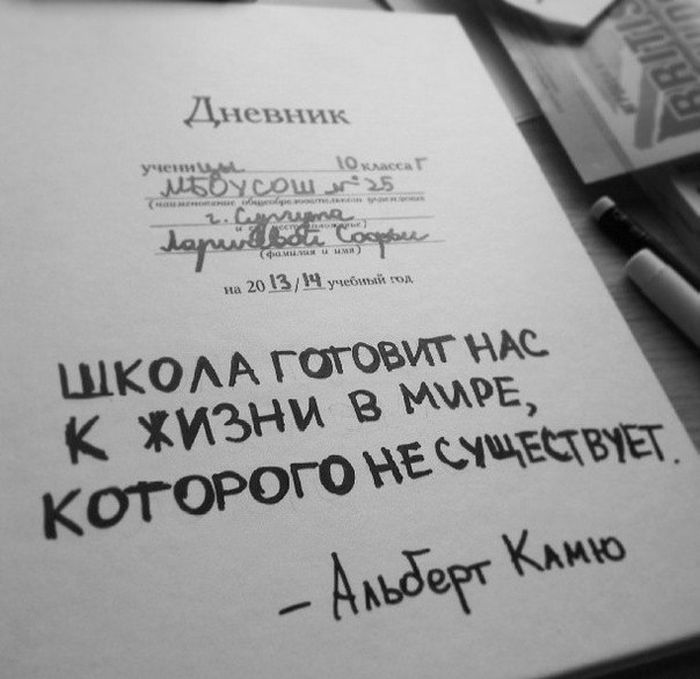 BRITIS
Дневник
ученицы 10 класса Г
МБОУСОШ №25
(наименование общеобразовательного учреждения
г. Сургута
Лариновой Софьи
(фамилия и имя)
на 2013/14 учебный год
ШКОЛА ГОТОВИТ НАС
К ЖИЗНИ В МИРЕ,
КОТОРОГО НЕ СУЩЕСТВУЕТ.
– Альберт Камю